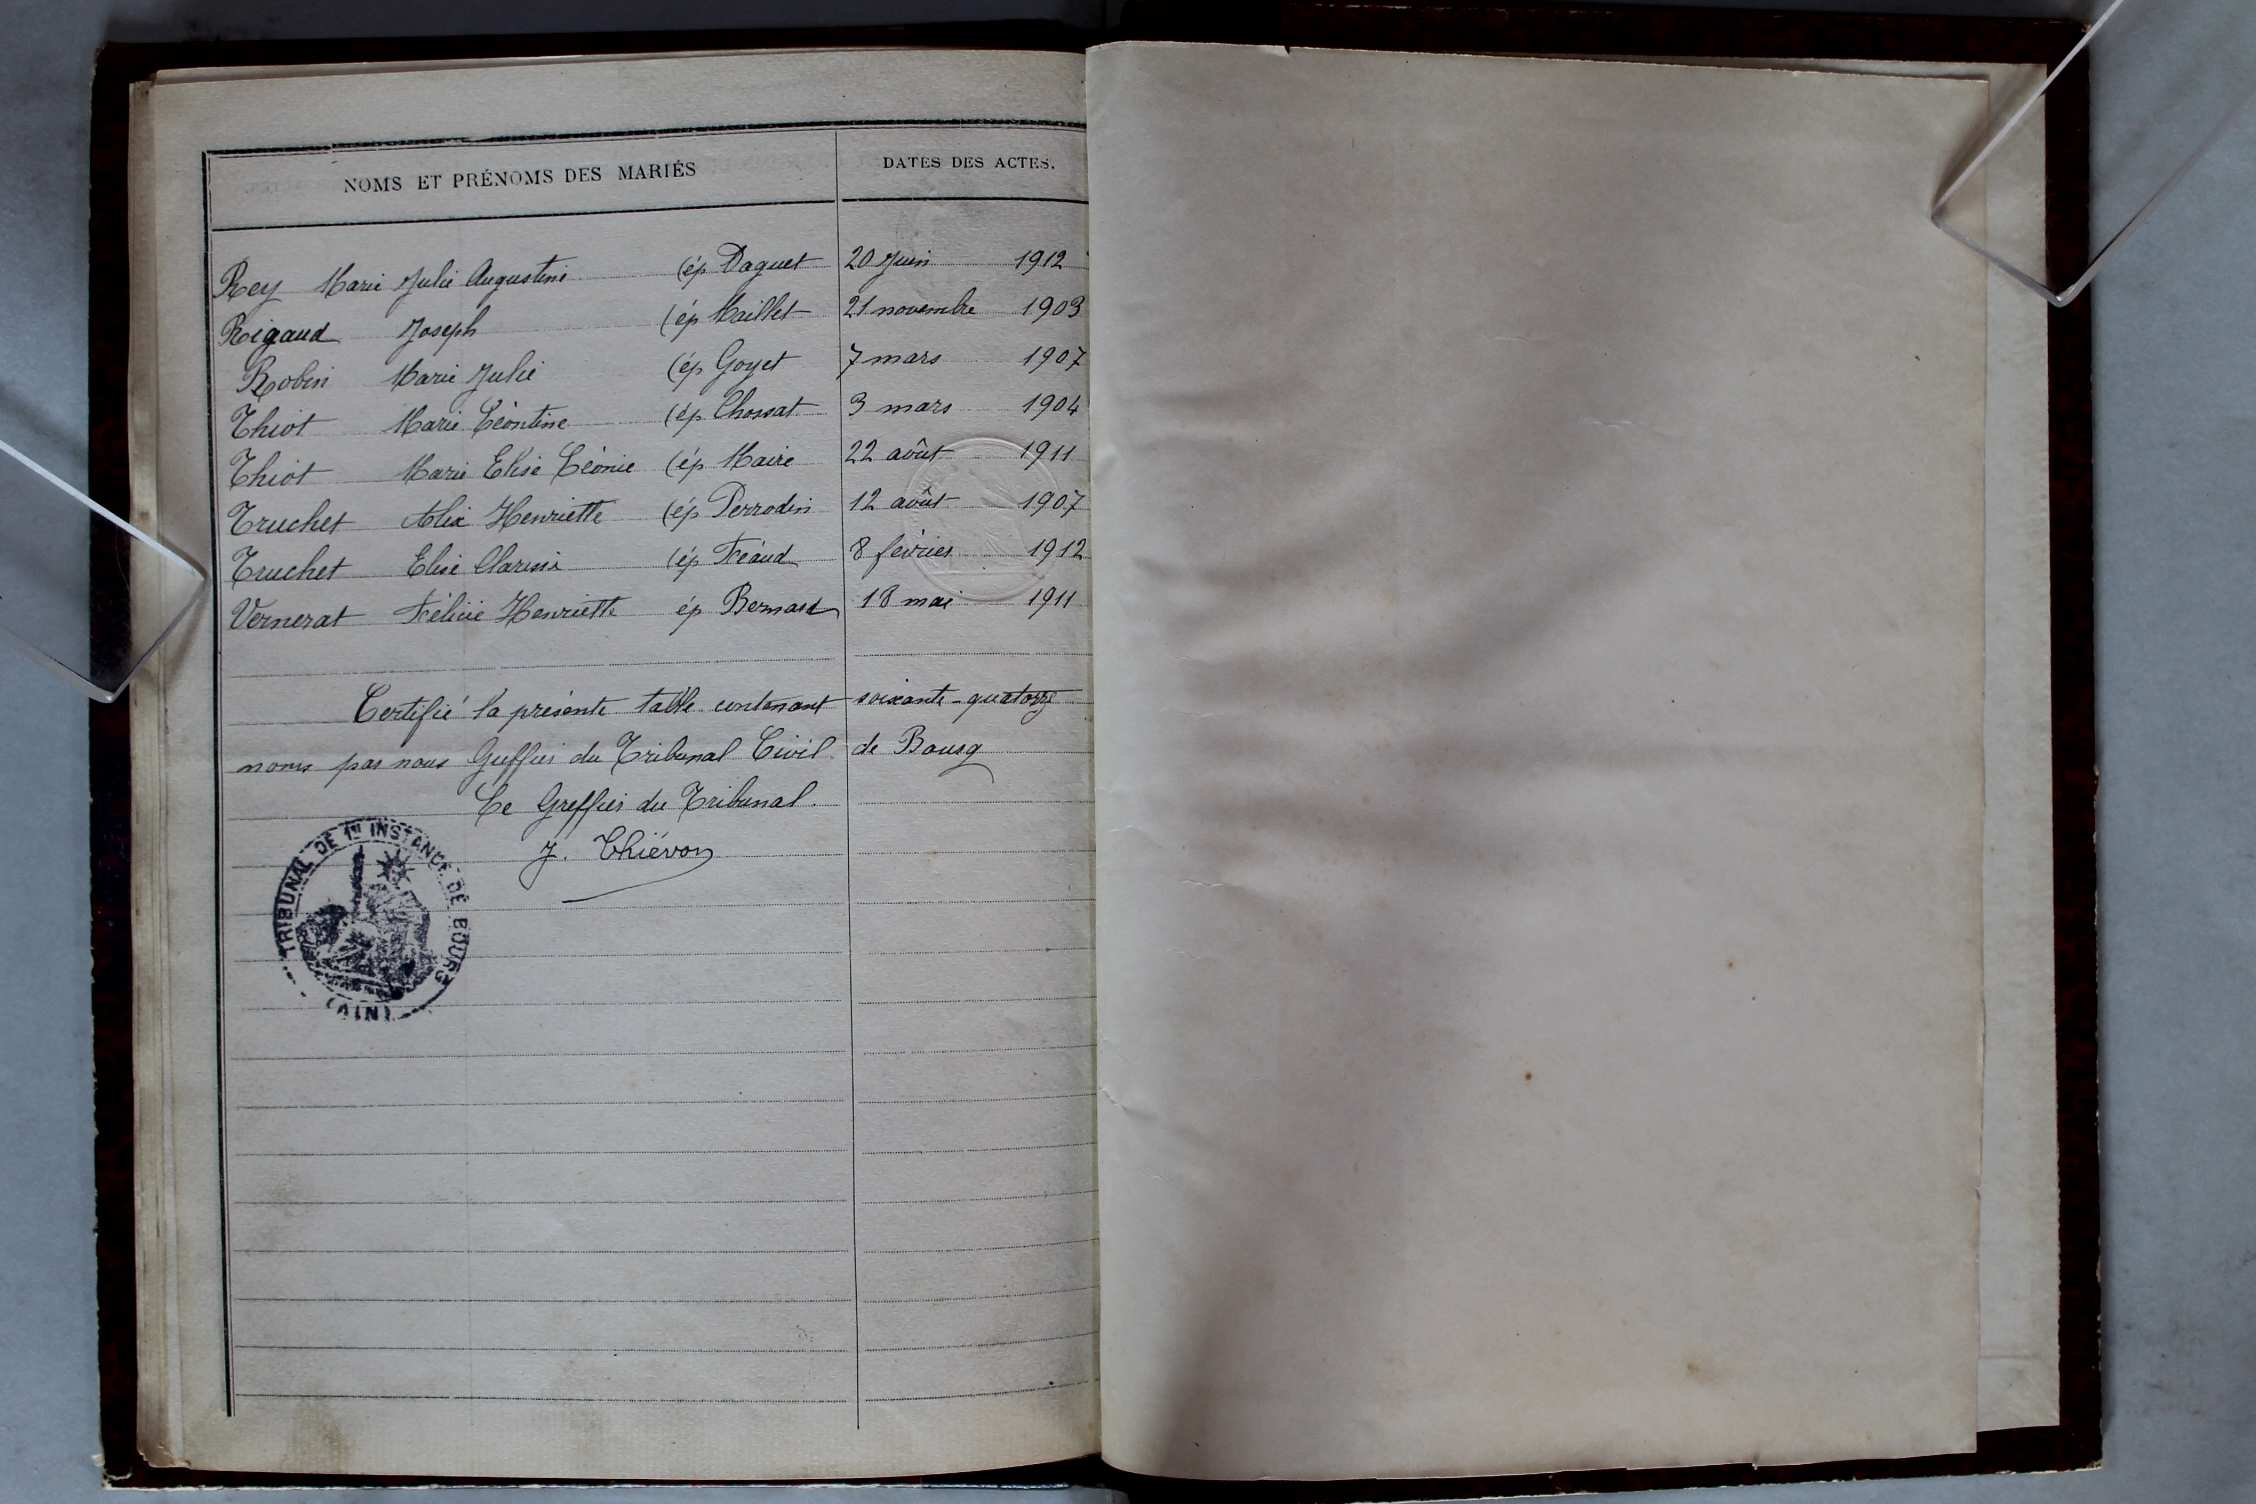 NOMS ET PRÉNOMS DES MARIÉS DATES DES ACTES.
Rey Marie Julie Augustine (ép Daguet 20 Juin 1912
Rigaud Joseph (ép Maillet 21 novembre 1903
Robin Marie Julie (ép Goyet 7 mars 1907
Thiot Marie Léontine (ép Chossat 3 mars 1904
Thiot Marie Elise Léonie (ép Maire 22 août 1911
Truchet Alix Henriette (ép Perrodin 12 août 1907
Truchet Elise Clarisse (ép Féaud 8 février 1912
Vernerat Félicie Henriette ép Bernard 18 mai 1911
Certifié la présente table contenant soixante-quatorze
noms par nous Greffier du Tribunal Civil de Bourg
Le Greffier du Tribunal.
J. Thiévon
TRIBUNAL DE 1re INSTANCE DE BOURG
(AIN)